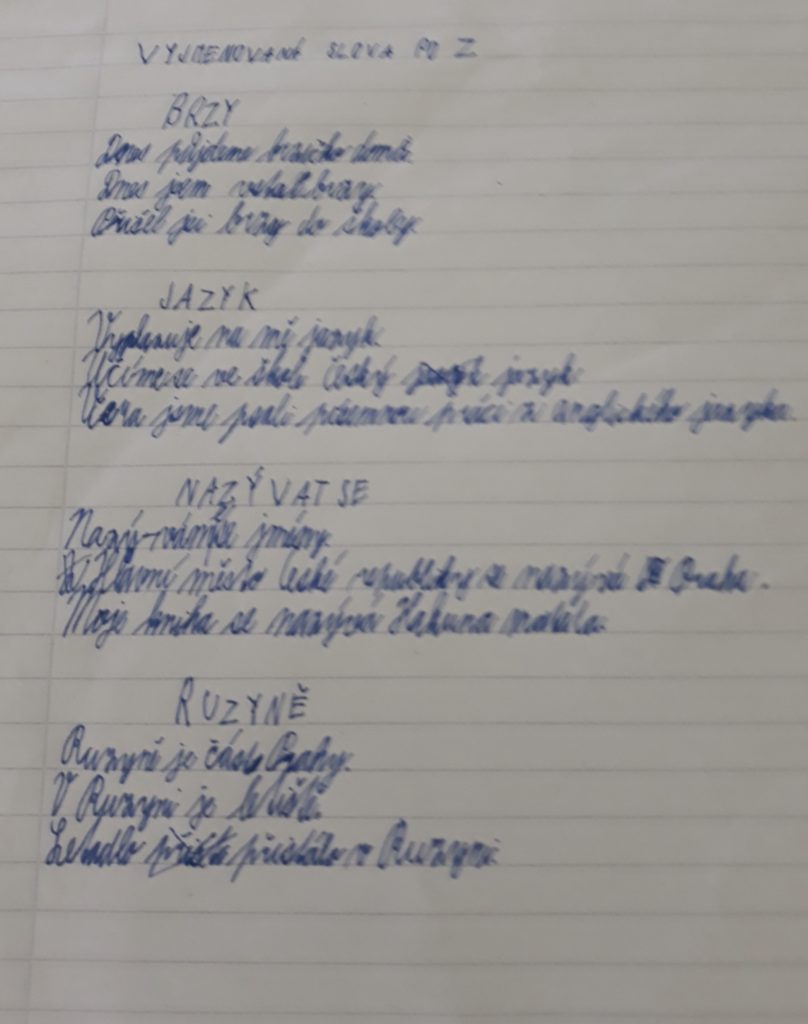 VYJMENOVANÁ SLOVA PO Z
BRZY
Dnes půjdeme brzičko domů.
Dnes jsem vstal brzy.
Přišel jsi brzy do školy.
JAZYK
Vyplazuje na mě jazyk.
Učíme se ve škole český jazyk
Včera jsme psali písemnou práci z anglického jazyka.
NAZÝVAT SE
jmény.
Hlavní město České republiky se nazývá Praha.
Moje kniha se nazývá Hakuna matata.
RUZYNĚ
Ruzyně je část Prahy.
V Ruzyni je letiště.
Letadlo přistálo v Ruzyni.